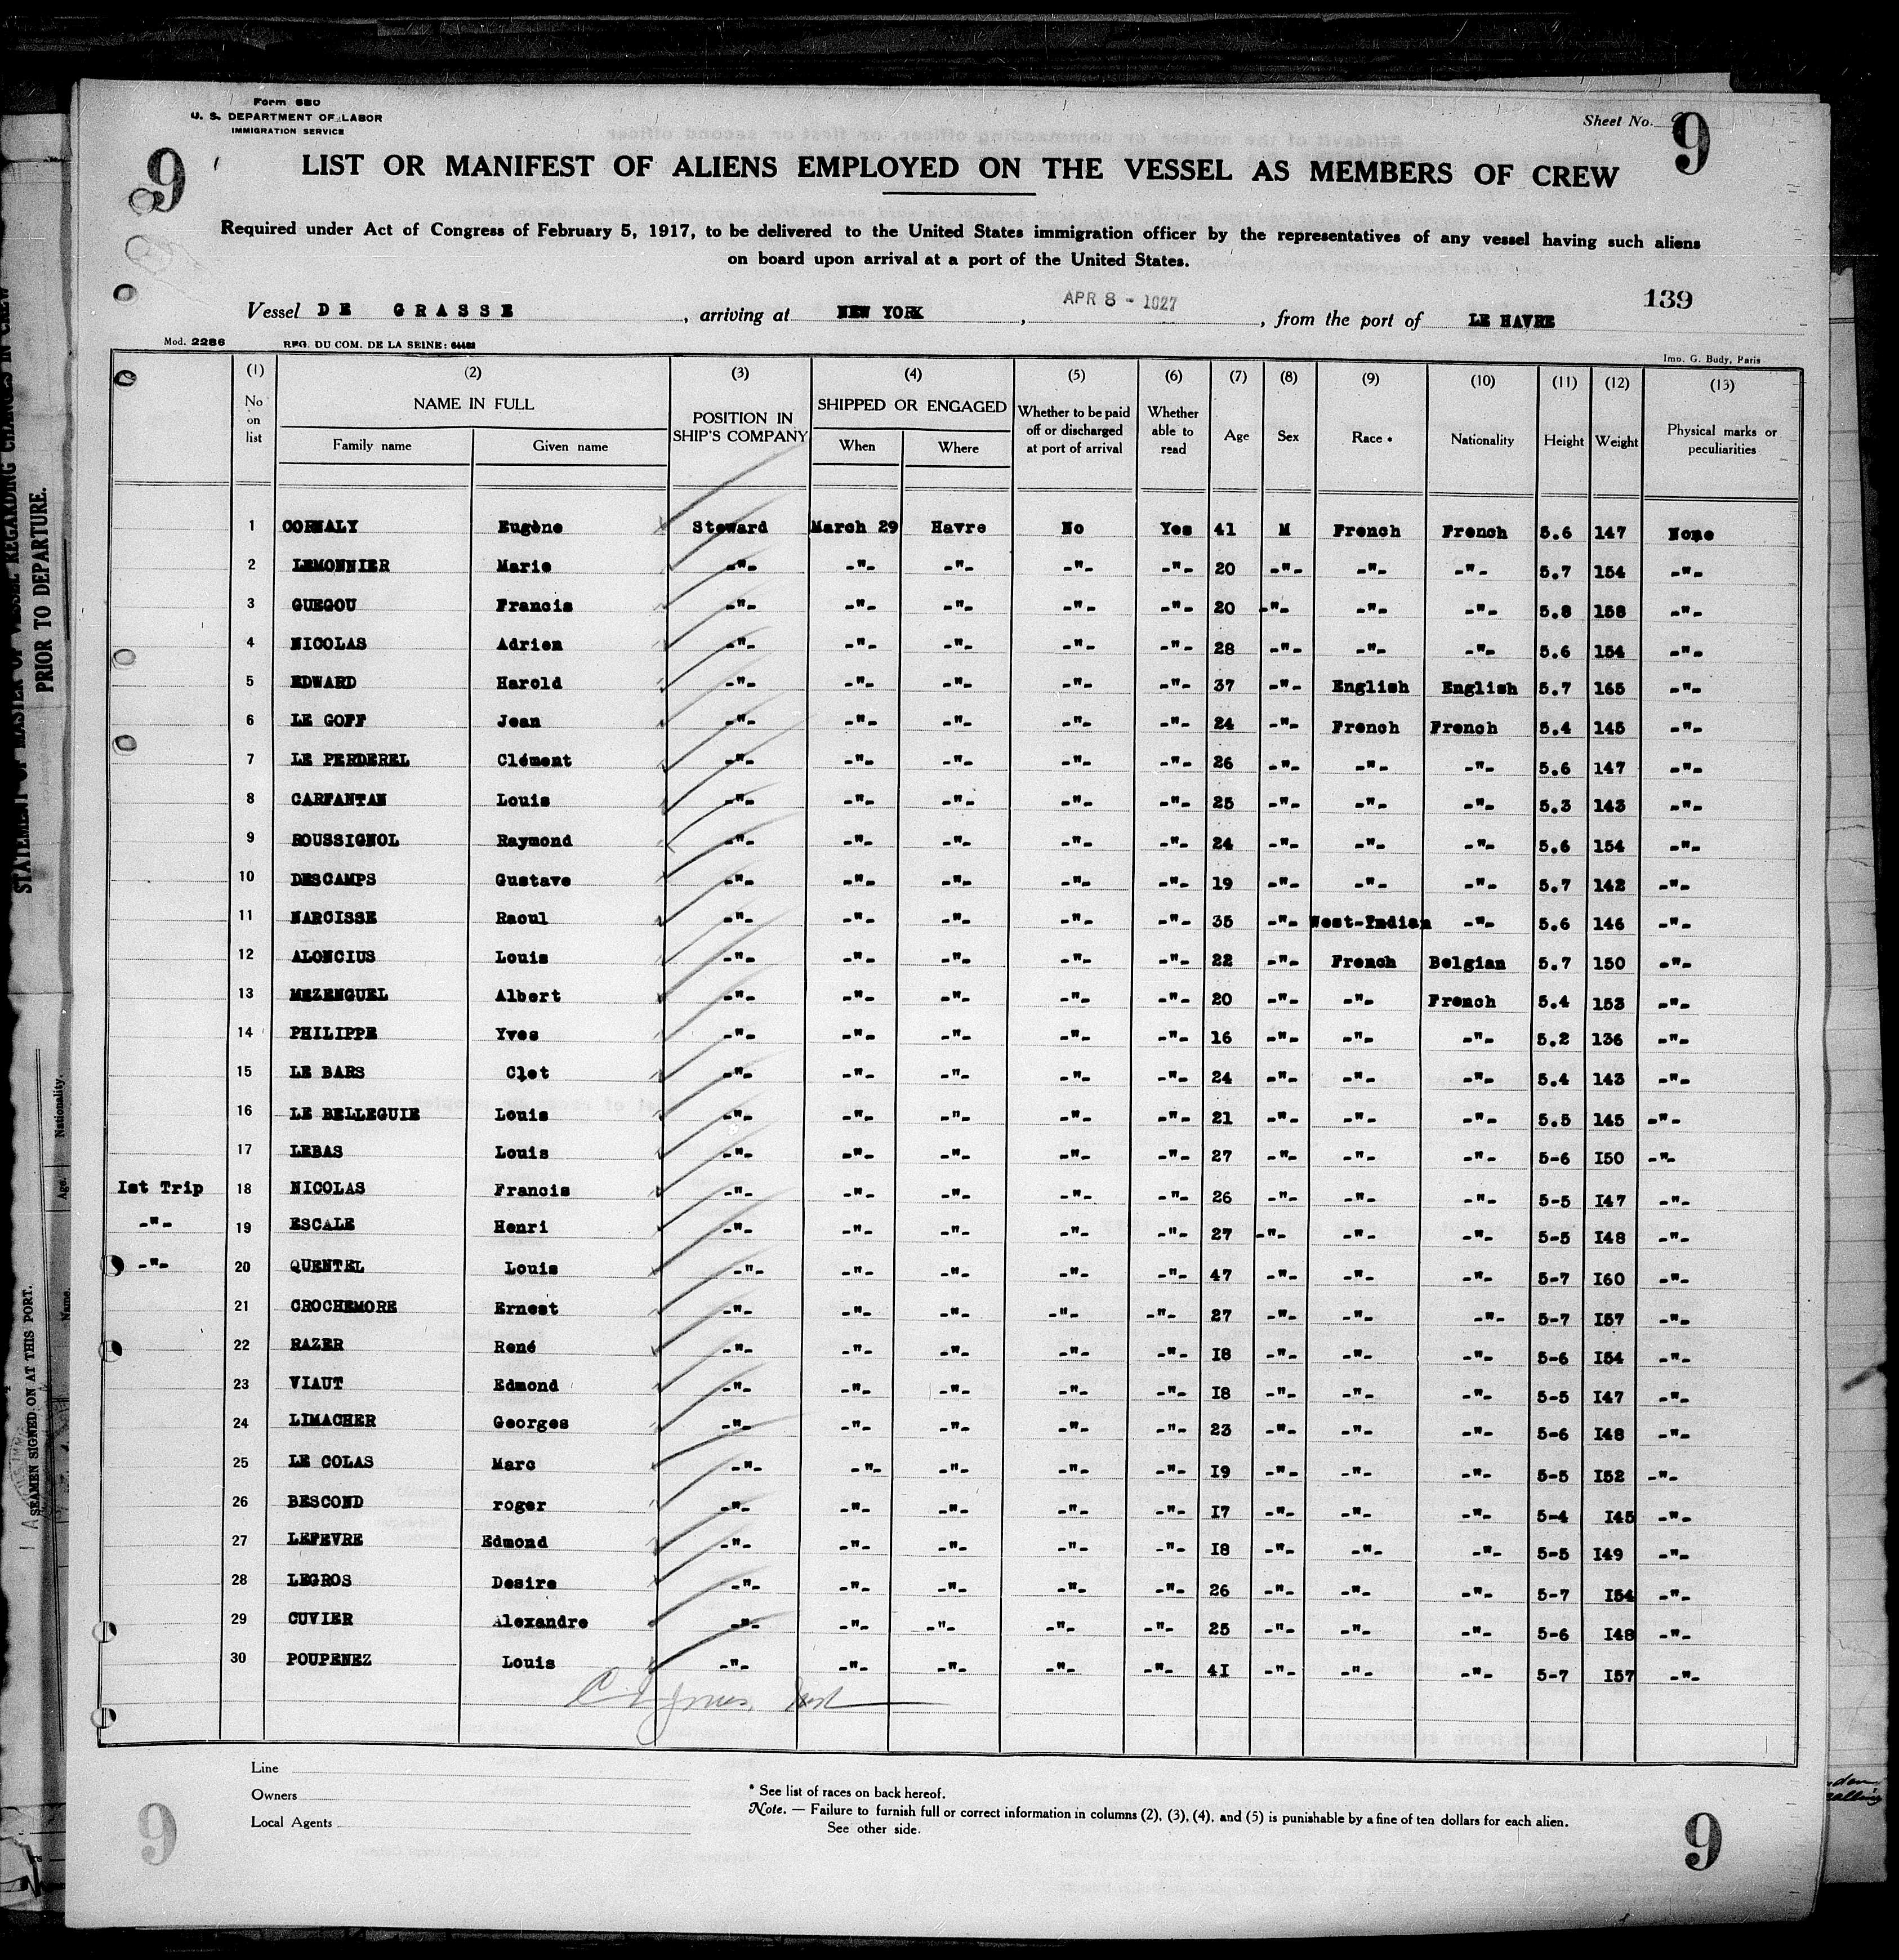 Form 680
U. S. DEPARTMENT OF LABOR
IMMIGRATION SERVICE
Sheet No.
9
9
LIST OR MANIFEST OF ALIENS EMPLOYED ON THE VESSEL AS MEMBERS OF CREW
Required under Act of Congress of February 5, 1917, to be delivered to the United States immigration officer by the representatives of any vessel having such aliens
on board upon arrival at a port of the United States.
Vessel DE GRASSE, arriving at NEW YORK, APR 8 - 1927, from the port of LE HAVRE
139
Mod. 2286 REG. DU COM. DE LA SEINE: Imp. G. Budy, Paris
(1) (2) (3) (4) (5) (6) (7) (8) (9) (10) (11) (12) (13)
No on list NAME IN FULL POSITION IN SHIP'S COMPANY SHIPPED OR ENGAGED Whether to be paid off or discharged at port of arrival Whether able to read Age Sex Race * Nationality Height Weight Physical marks or peculiarities
Family name Given name When Where
1 CORNALY Eugène Steward March 29 Havre No Yes 41 M French French 5.6 147 None
2 LEMONNIER Marie -"- -"- -"- -"- -"- 20 -"- -"- -"- 5.7 154 -"-
3 GUEGOU Francis -"- -"- -"- -"- -"- 20 -"- -"- -"- 5.8 158 -"-
4 NICOLAS Adrien -"- -"- -"- -"- -"- 28 -"- -"- -"- 5.6 154 -"-
5 EDWARD Harold -"- -"- -"- -"- -"- 37 -"- English English 5.7 165 -"-
6 LE GOFF Jean -"- -"- -"- -"- -"- 24 -"- French French 5.4 145 -"-
7 LE PERDEREL Clément -"- -"- -"- -"- -"- 26 -"- -"- -"- 5.6 147 -"-
8 CARFANTAN Louis -"- -"- -"- -"- -"- 25 -"- -"- -"- 5.3 143 -"-
9 ROUSSIGNOL Raymond -"- -"- -"- -"- -"- 24 -"- -"- -"- 5.6 154 -"-
10 DESCAMPS Gustave -"- -"- -"- -"- -"- 19 -"- -"- -"- 5.7 142 -"-
11 NARCISSE Raoul -"- -"- -"- -"- -"- 35 -"- West-Indian -"- 5.6 146 -"-
12 ALONCIUS Louis -"- -"- -"- -"- -"- 22 -"- French Belgian 5.7 150 -"-
13 MEZENGUEL Albert -"- -"- -"- -"- -"- 20 -"- -"- French 5.4 153 -"-
14 PHILIPPE Yves -"- -"- -"- -"- -"- 16 -"- -"- -"- 5.2 136 -"-
15 LE BARS Clet -"- -"- -"- -"- -"- 24 -"- -"- -"- 5.4 143 -"-
16 LE BELLEGUIE Louis -"- -"- -"- -"- -"- 21 -"- -"- -"- 5.5 145 -"-
17 LEBAS Louis -"- -"- -"- -"- -"- 27 -"- -"- -"- 5-6 I50 -"-
Ist Trip 18 NICOLAS Francis -"- -"- -"- -"- -"- 26 -"- -"- -"- 5-5 I47 -"-
-"- 19 ESCALE Henri -"- -"- -"- -"- -"- 27 -"- -"- -"- 5-5 I48 -"-
-"- 20 QUENTEL Louis -"- -"- -"- -"- -"- 47 -"- -"- -"- 5-7 I60 -"-
21 CROCHEMORE Ernest -"- -"- -"- -"- -"- 27 -"- -"- -"- 5-7 I57 -"-
22 RAZER René -"- -"- -"- -"- -"- I8 -"- -"- -"- 5-6 I54 -"-
23 VIAUT Edmond -"- -"- -"- -"- -"- I8 -"- -"- -"- 5-5 I47 -"-
24 LIMACHER Georges -"- -"- -"- -"- -"- 23 -"- -"- -"- 5-6 I48 -"-
25 LE COLAS Marc -"- -"- -"- -"- -"- I9 -"- -"- -"- 5-5 I52 -"-
26 BESCOND roger -"- -"- -"- -"- -"- I7 -"- -"- -"- 5-4 I45 -"-
27 LEFEVRE Edmond -"- -"- -"- -"- -"- I8 -"- -"- -"- 5-5 I49 -"-
28 LEGROS Desire -"- -"- -"- -"- -"- 26 -"- -"- -"- 5-7 I54 -"-
29 CUVIER Alexandre -"- -"- -"- -"- -"- 25 -"- -"- -"- 5-6 I48 -"-
30 POUPENEZ Louis -"- -"- -"- -"- -"- 4I -"- -"- -"- 5-7 I57 -"-
Line
Owners
Local Agents
* See list of races on back hereof.
Note. — Failure to furnish full or correct information in columns (2), (3), (4), and (5) is punishable by a fine of ten dollars for each alien.
See other side.
9
9
PRIOR TO DEPARTURE.
SEAMEN SIGNED ON AT THIS PORT.
Nationality.
Age.
Name.